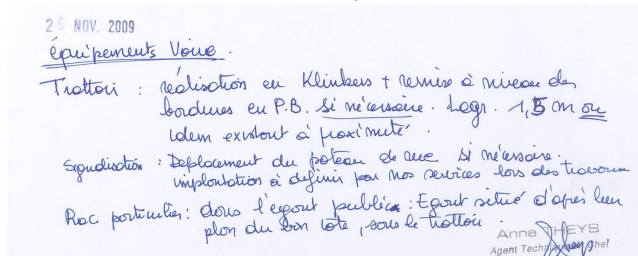 26 NOV. 2009
équipements Voirie.
Trottoir : réalisation en Klinkers + remise à niveau des
bordures en P.B. si nécessaire. Largr. 1,5 m ou
idem existant à proximité.
Signalisation : Déplacement du poteau de rue si nécessaire.
implantation à définir par nos services lors des travaux
Rac particulier : dans l'égout public : Egout situé d'après leur
plan du bon côté, sous le trottoir.
Anne THEYS
Agent Technique chef